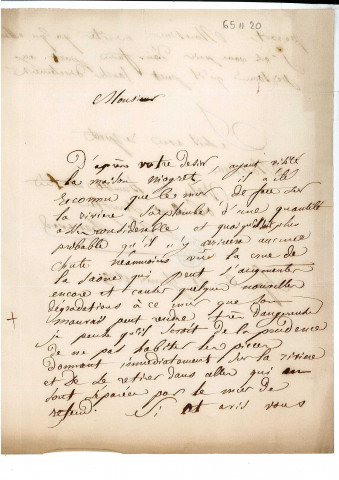 65 II 20
Monsieur
D'après votre desir, ayant visité
la maison niogret, il a été
reconnu que le mur de face sur
la rivière surplombe d'une quantité
assez considerable et quoiqu'il soit plus
probable qu'il n'y arrivera aucune
chute neanmoins vu la crue de
la saône qui peut s'augmenter
encore et causer quelques nouvelles
dégradations à ce mur que son
mauvais peut rendre très dangereuse
+
je pense qu'il serait de la prudence
de ne pas habiter les pièces
donnant immédiatement sur la rivière
et de se retirer dans celles qui en
sont séparées par le mur de
refend. Si cet avis vous